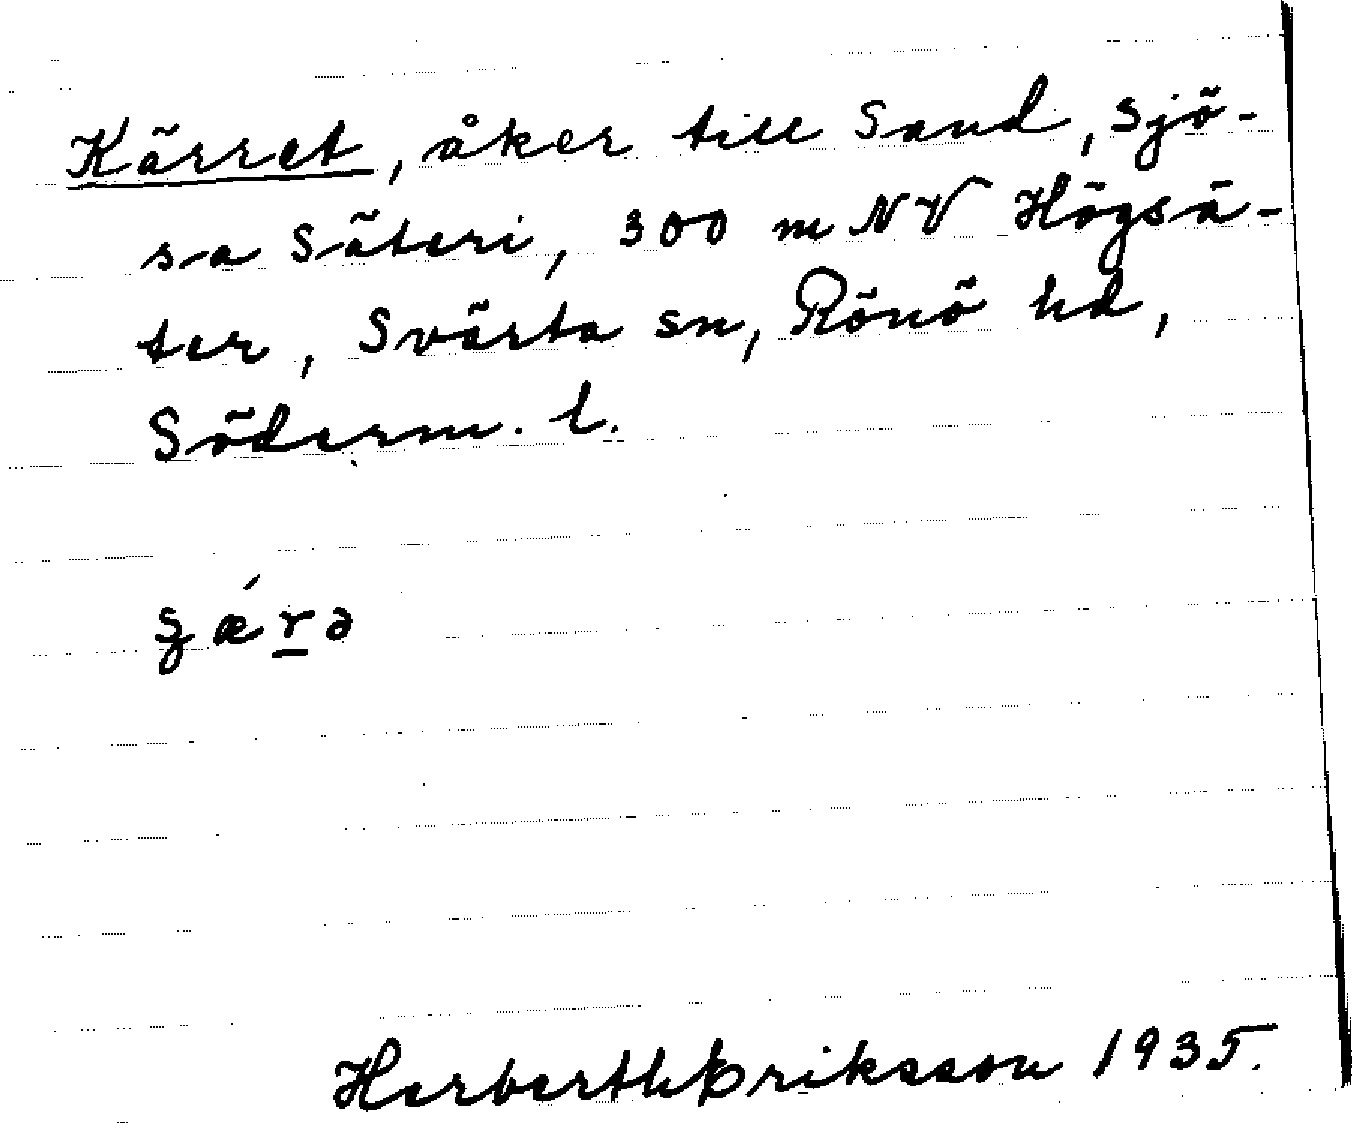 Kärret, åker till Sand, Sjö-
sa Säteri, 300 m NV Högsä-
ter, Svärta sn, Rönö hd,
Söderm. l.
Herberth Eriksson 1935.